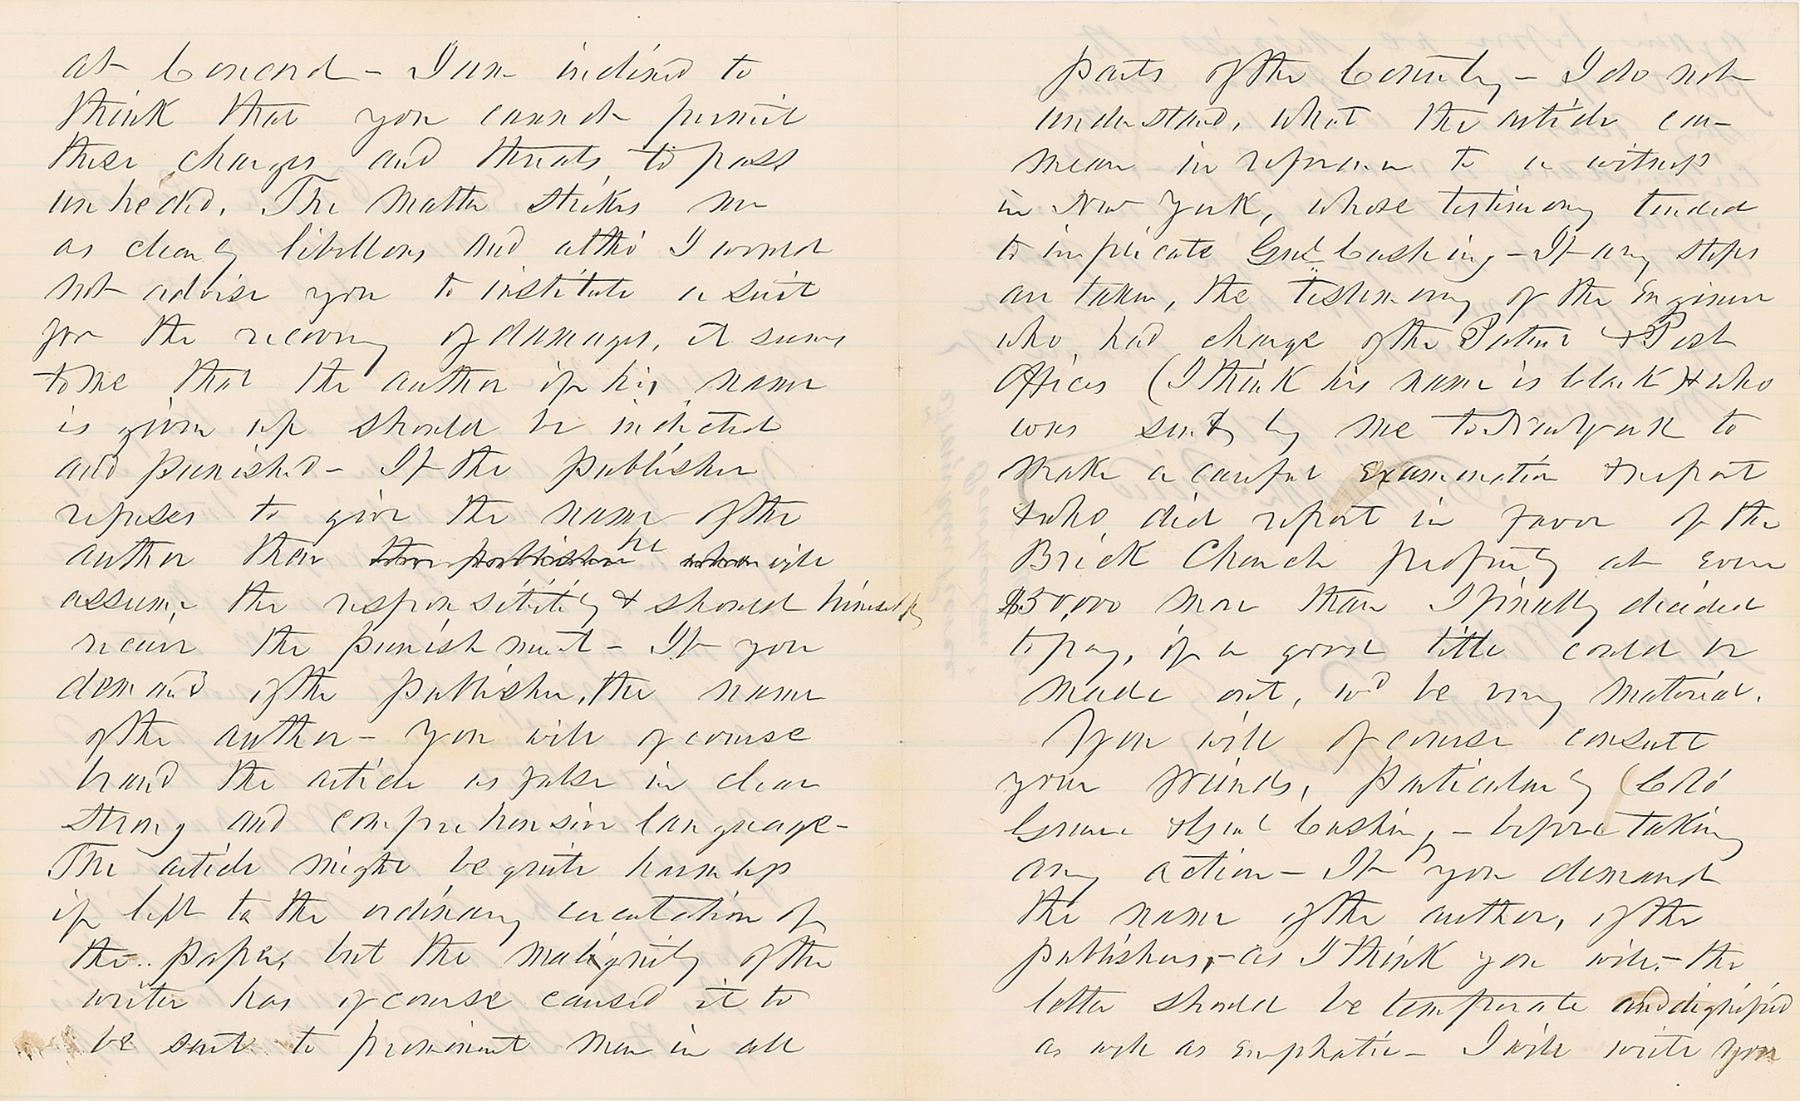 at Concord – I am inclined to
think that you cannot permit
these charges and threats, to pass
unheeded. The matter strikes me
as clearly libellous and altho' I would
not advise you to institute a suit
for the recovery of damages, it seems
to me that the author if his name
is given up should be indicted
and punished – If the publisher
refuses to give the name of the
author then the publisher he when will
assume the responsibility & should himself
receive the punishment – If you
demand of the publisher, the name
of the author – You will of course
brand the article as false in clear
strong and comprehensive language –
The article might be quite harmless
if left to the ordinary circulation of
the paper, but the malignity of the
writer has of course caused it to
be sent to prominent men in all
parts of the Country – I do not
understand, what the article can
mean in reference to a witness
in New York, whose testimony tended
to implicate Genl Cushing – If any steps
are taken, the testimony of the Engineer
who had charge of the Patent & Post
Offices (I think his name is Clark) & who
was sent by me to New York to
make a careful examination & report
& who did report in favor of the
Brick Church property at even
$50,000 more than I finally decided
to pay, if a good title could be
made out, wd be very material.
You will of course consult
your friends, particularly Colo
Greene & Genl Cushing, – before taking
any action – If you demand
the name of the author, of the
publishers, – as I think you will, – the
letter should be temperate and dignified
as well as emphatic – I will write you